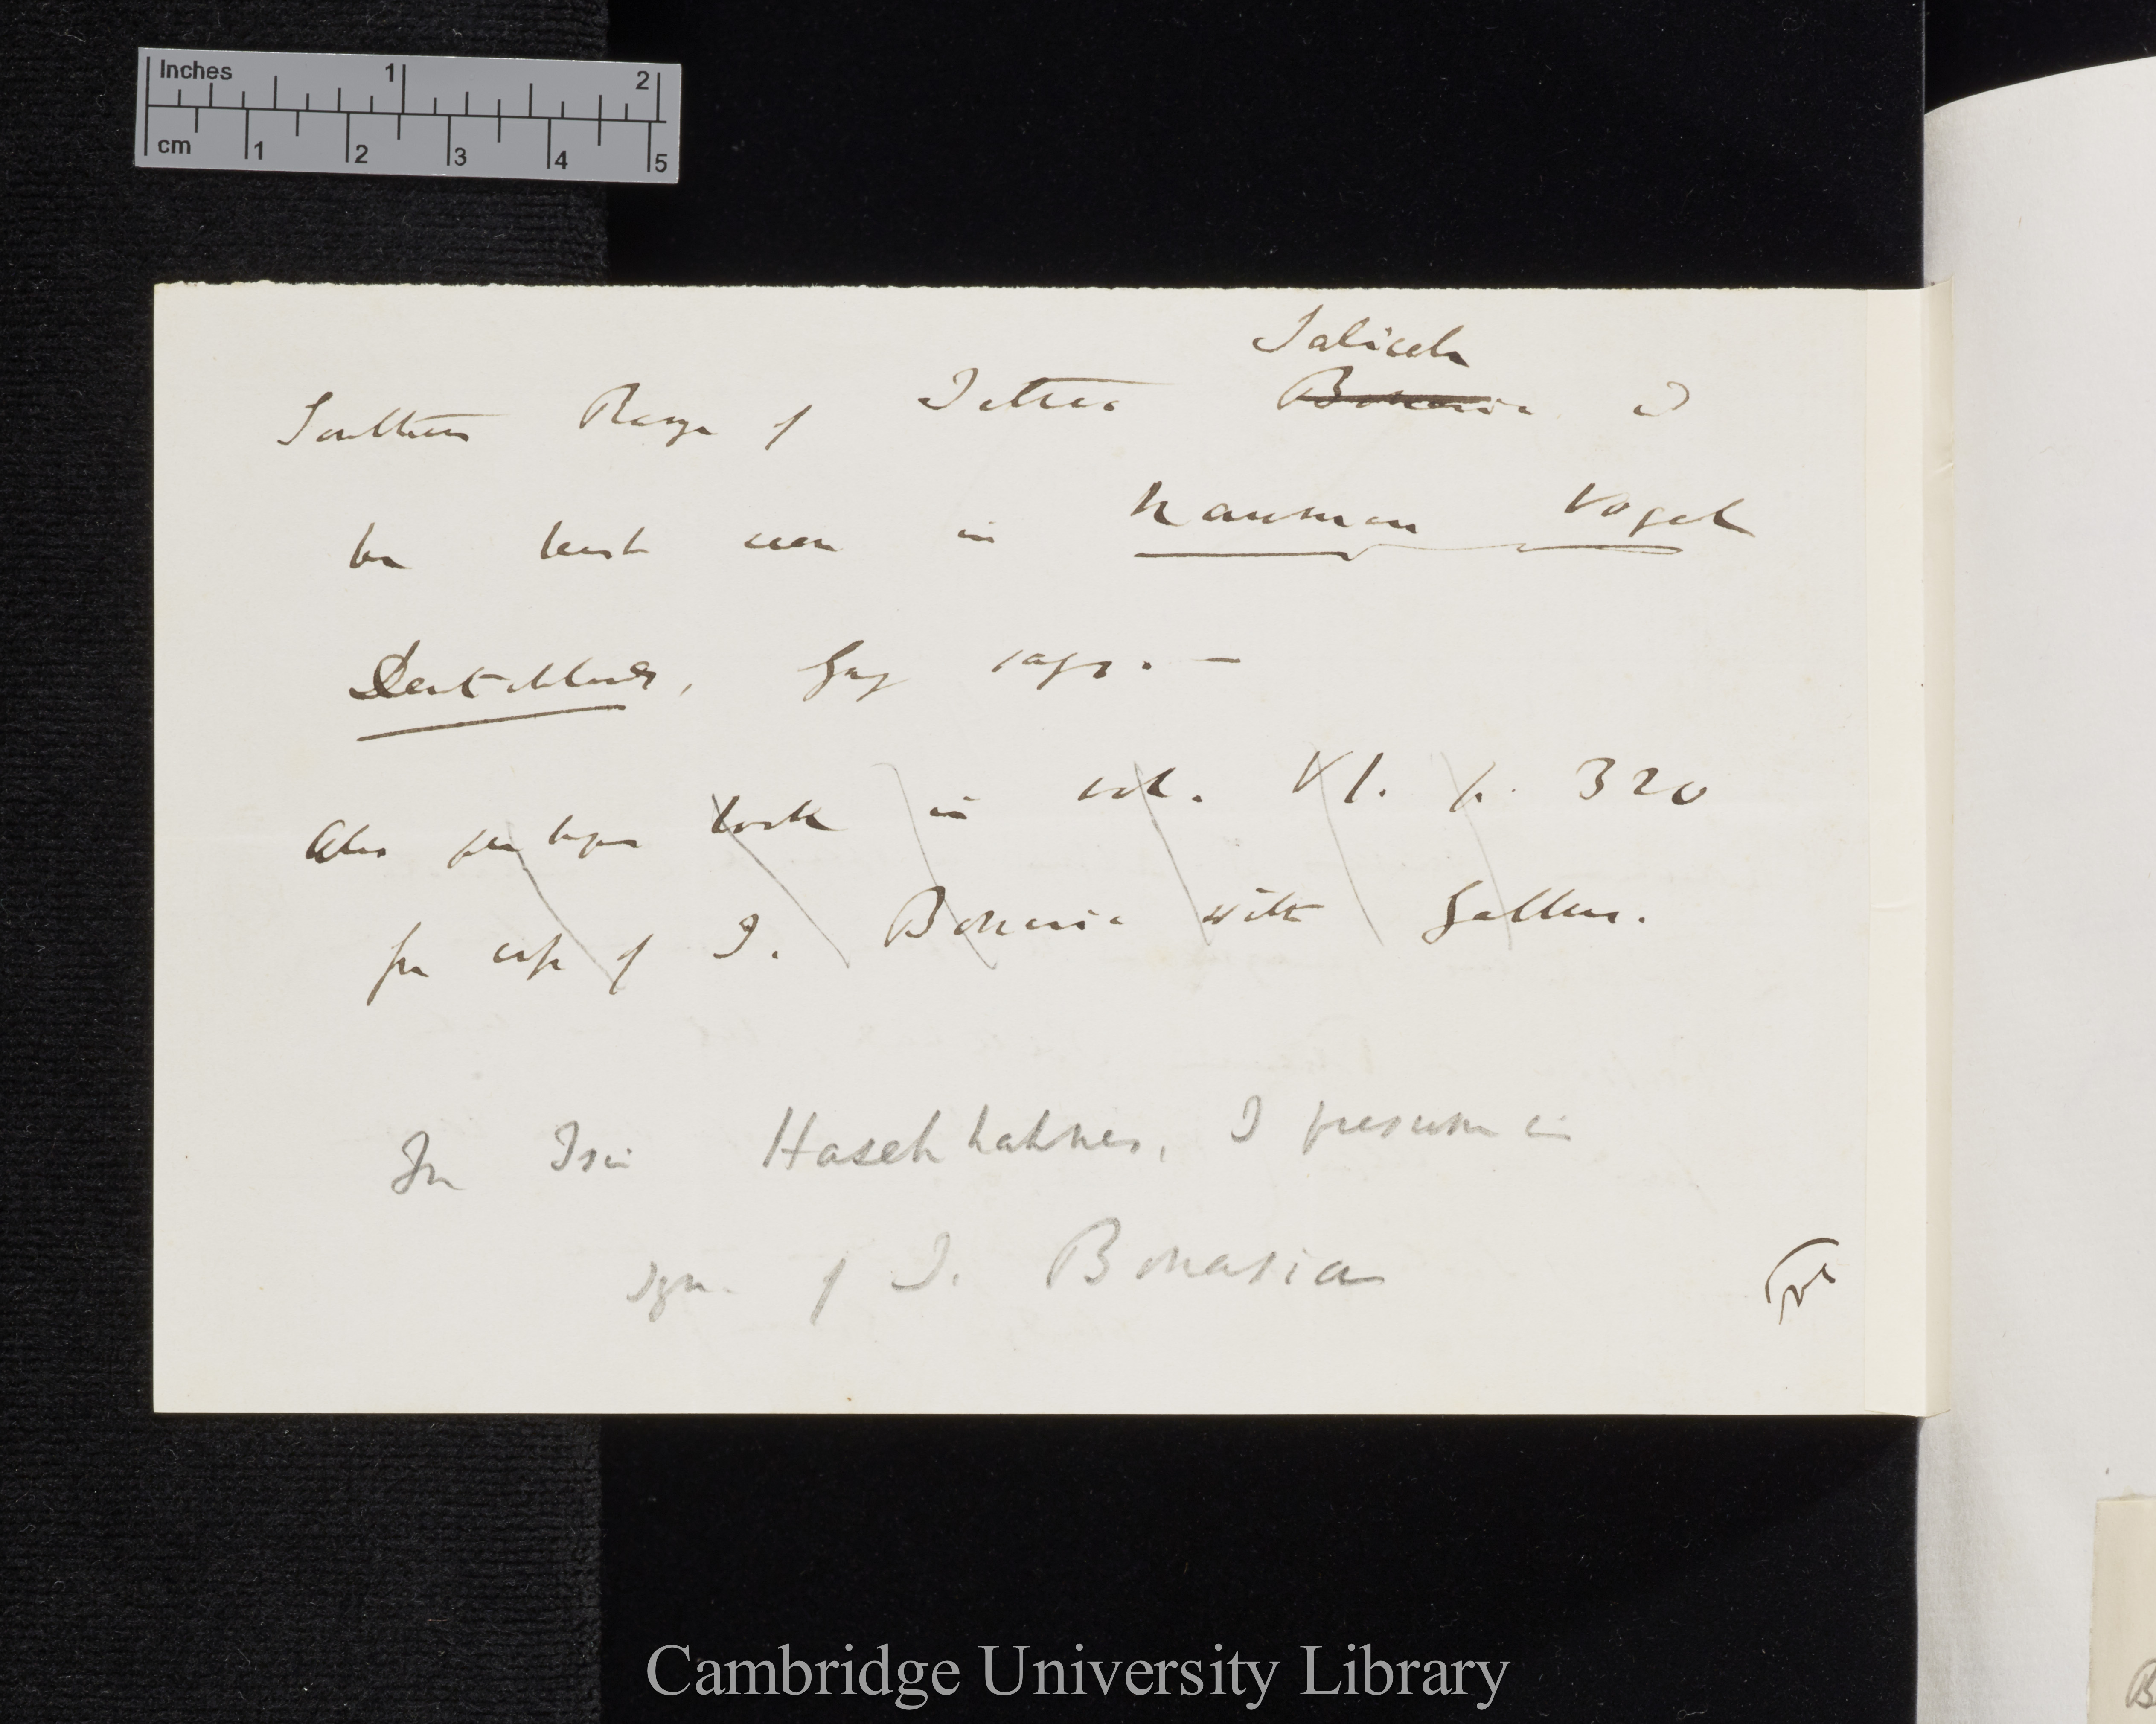 Inches 1 2
cm 1 2 3 4 5
Saliceti
Southern Range of Tetrao Bonasia w^d
be best seen in Nauman Vogel
Deutschlands, Gray says. —
Also perhaps look in vol. VI. p. 320
for cross of T. Bonasia with Gallus.
In Isis Haselhahnes, I presume is
syn. of T. Bonasia
over
Cambridge University Library
B